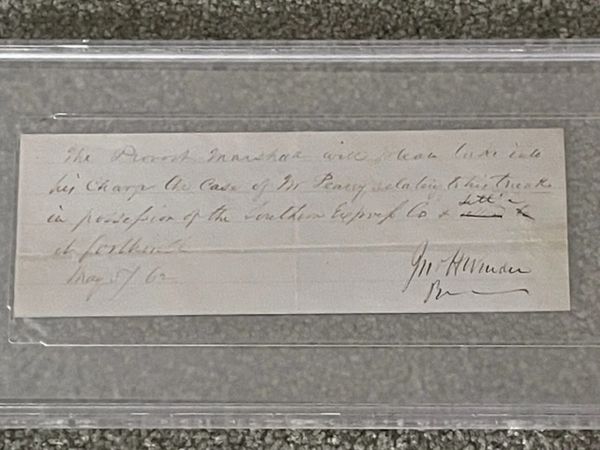 The Provost Marshal will please take into
his Charge the Case of Mr Peavy relating to his trunk
in possession of the Southern Express Co & settle
it forthwith
May 5/62
Jno H Winder